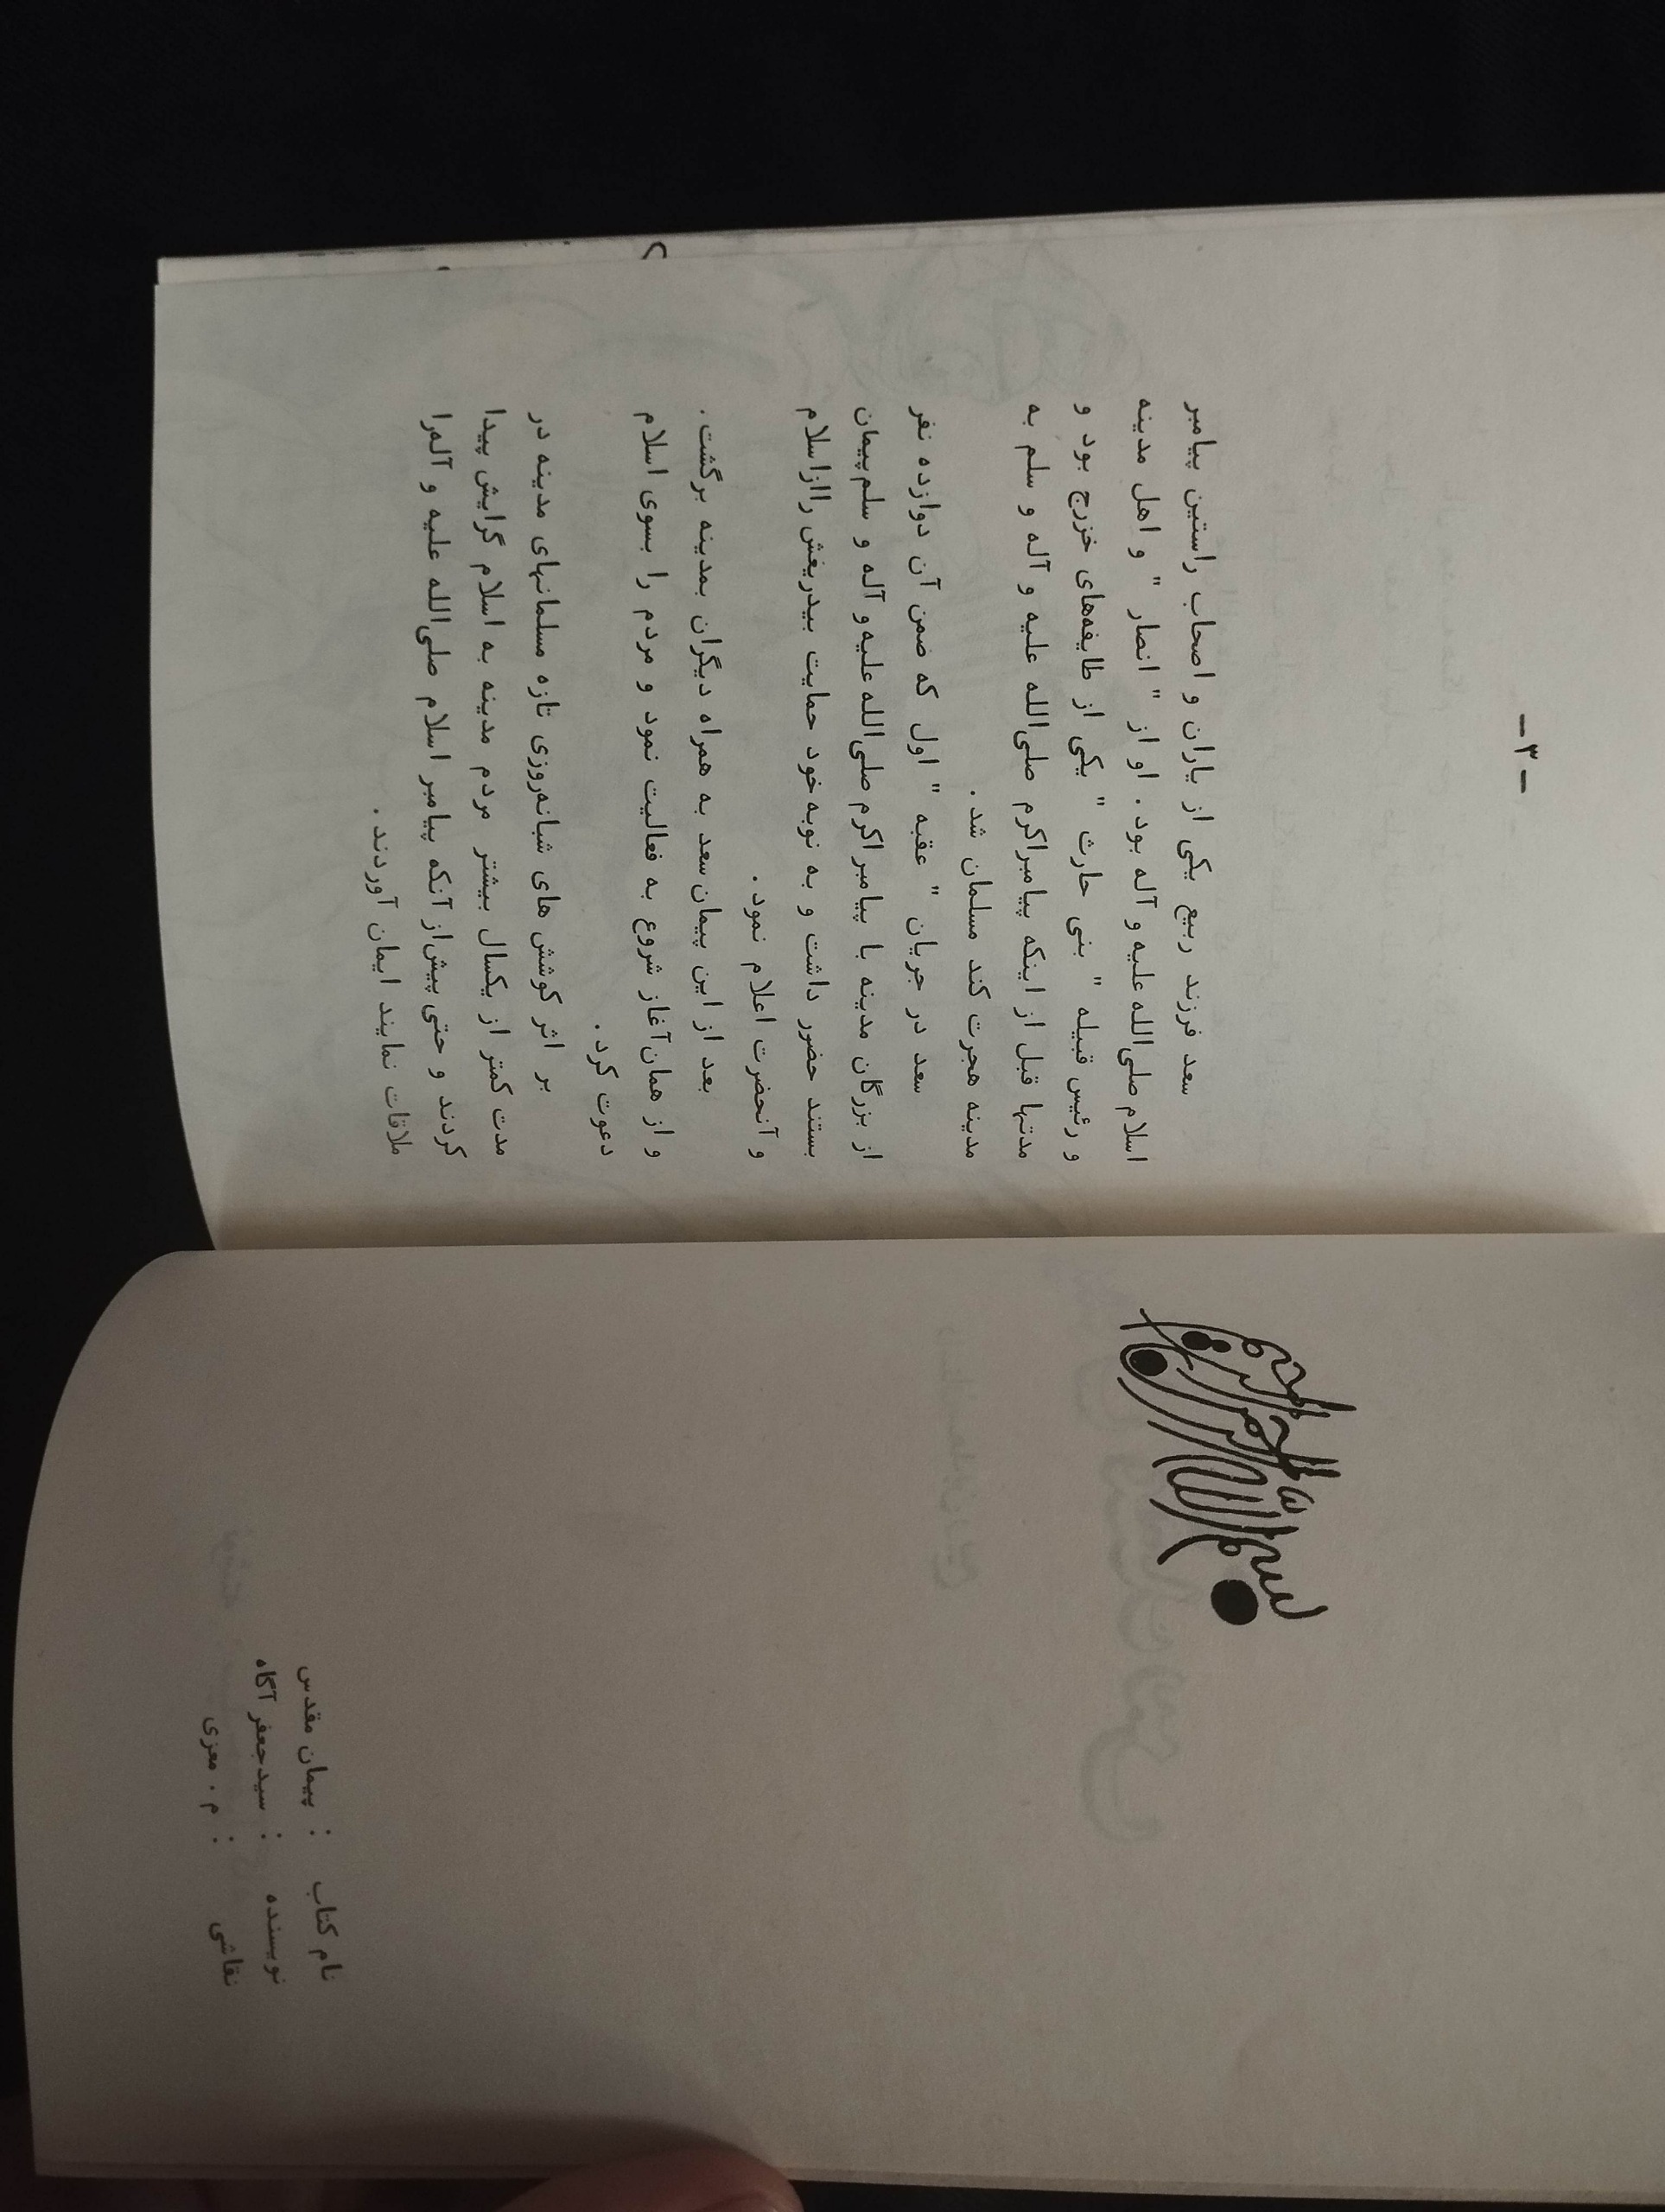 بسم الله الرحمن الرحیم
نام کتاب : پیمان مقدس
نویسنده : سیدجعفر آگاه
نقاشی : م . معزی
- ۳ -
سعد فرزند ربیع یکی از یاران و اصحاب راستین پیامبر
اسلام صلی‌الله علیه و آله بود . او از " انصار " و اهل مدینه
و رئیس قبیله " بنی حارث " یکی از طایفه‌های خزرج بود و
مدتها قبل از اینکه پیامبراکرم صلی‌الله علیه و آله و سلم به
مدینه هجرت کند مسلمان شد .
سعد در جریان " عقبه " اول که ضمن آن دوازده نفر
از بزرگان مدینه با پیامبر اکرم صلی‌الله علیه و آله و سلم پیمان
بستند حضور داشت و به نوبه خود حمایت بیدریغش را از اسلام
و آنحضرت اعلام نمود .
بعد از این پیمان سعد به همراه دیگران بمدینه برگشت .
و از همان آغاز شروع به فعالیت نمود و مردم را بسوی اسلام
دعوت کرد .
بر اثر کوشش های شبانه‌روزی تازه مسلمانهای مدینه در
مدت کمتر از یکسال بیشتر مردم مدینه به اسلام گرایش پیدا
کردند و حتی پیش‌از آنکه پیامبر اسلام صلی‌الله علیه و آله‌را
ملاقات نمایند ایمان آوردند .